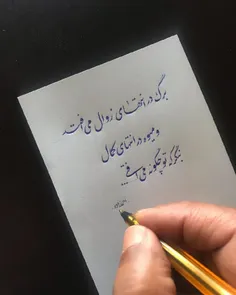 برگ در انتهای زوال می افتد
و میوه در انتهای کمال
بنگر که تو چگونه می افتی...